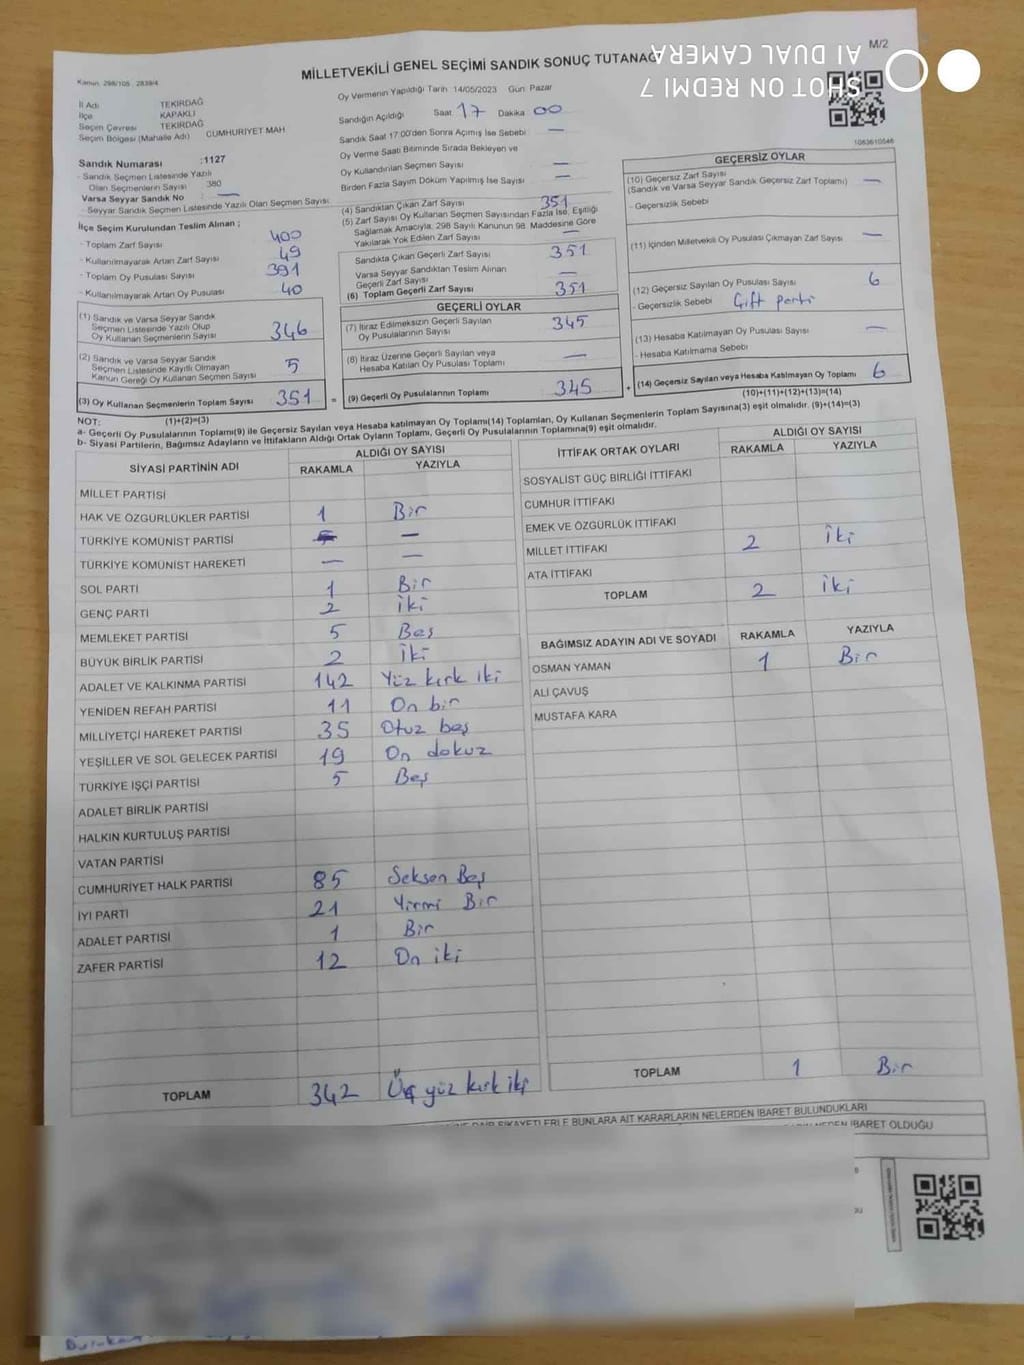 SHOT ON REDMI 7
AI DUAL CAMERA
M/2
Kanun: 298/105 2839/4
MİLLETVEKİLİ GENEL SEÇİMİ SANDIK SONUÇ TUTANAĞI
İl Adı TEKİRDAĞ
İlçe KAPAKLI
Seçim Çevresi TEKİRDAĞ
Seçim Bölgesi (Mahalle Adı) CUMHURİYET MAH
Sandık Numarası :1127
- Sandık Seçmen Listesinde Yazılı
Olan Seçmenlerin Sayısı 380
Varsa Seyyar Sandık No : —
- Seyyar Sandık Seçmen Listesinde Yazılı Olan Seçmen Sayısı
İlçe Seçim Kurulundan Teslim Alınan ;
- Toplam Zarf Sayısı 400
- Kullanılmayarak Artan Zarf Sayısı 49
- Toplam Oy Pusulası Sayısı 391
- Kullanılmayarak Artan Oy Pusulası 40
(1) Sandık ve Varsa Seyyar Sandık
Seçmen Listesinde Yazılı Olup
Oy Kullanan Seçmenlerin Sayısı 346
(2) Sandık ve Varsa Seyyar Sandık
Seçmen Listesinde Kayıtlı Olmayan
Kanun Gereği Oy Kullanan Seçmen Sayısı 5
(3) Oy Kullanan Seçmenlerin Toplam Sayısı 351 =
Oy Vermenin Yapıldığı Tarih 14/05/2023 Gün: Pazar
Sandığın Açıldığı Saat 17 Dakika 00
Sandık Saat 17:00'den Sonra Açılmış İse Sebebi : —
Oy Verme Saati Bitiminde Sırada Bekleyen ve
Oy Kullandırılan Seçmen Sayısı —
Birden Fazla Sayım Döküm Yapılmış İse Sayısı —
(4) Sandıktan Çıkan Zarf Sayısı 351
(5) Zarf Sayısı Oy Kullanan Seçmen Sayısından Fazla İse, Eşitliği
Sağlamak Amacıyla, 298 Sayılı Kanunun 98. Maddesine Göre
Yakılarak Yok Edilen Zarf Sayısı —
Sandıkta Çıkan Geçerli Zarf Sayısı 351
Varsa Seyyar Sandıktan Teslim Alınan
Geçerli Zarf Sayısı —
(6) Toplam Geçerli Zarf Sayısı 351
GEÇERLİ OYLAR
(7) İtiraz Edilmeksizin Geçerli Sayılan
Oy Pusulalarının Sayısı 345
(8) İtiraz Üzerine Geçerli Sayılan veya
Hesaba Katılan Oy Pusulası Toplamı —
(9) Geçerli Oy Pusulalarının Toplamı 345 +
1083610546
GEÇERSİZ OYLAR
(10) Geçersiz Zarf Sayısı
(Sandık ve Varsa Seyyar Sandık Geçersiz Zarf Toplamı) —
- Geçersizlik Sebebi
(11) İçinden Milletvekili Oy Pusulası Çıkmayan Zarf Sayısı —
(12) Geçersiz Sayılan Oy Pusulası Sayısı 6
- Geçersizlik Sebebi Çift parti
(13) Hesaba Katılmayan Oy Pusulası Sayısı —
- Hesaba Katılmama Sebebi
(14) Geçersiz Sayılan veya Hesaba Katılmayan Oy Toplamı 6
(10)+(11)+(12)+(13)=(14)
NOT: (1)+(2)=(3)
a- Geçerli Oy Pusulalarının Toplamı(9) ile Geçersiz Sayılan veya Hesaba katılmayan Oy Toplamı(14) Toplamları, Oy Kullanan Seçmenlerin Toplam Sayısına(3) eşit olmalıdır. (9)+(14)=(3)
b- Siyasi Partilerin, Bağımsız Adayların ve İttifakların Aldığı Ortak Oyların Toplamı, Geçerli Oy Pusulalarının Toplamına(9) eşit olmalıdır.
SİYASİ PARTİNİN ADI
ALDIĞI OY SAYISI
RAKAMLA YAZIYLA
MİLLET PARTİSİ
HAK VE ÖZGÜRLÜKLER PARTİSİ 1 Bir
TÜRKİYE KOMÜNİST PARTİSİ —
TÜRKİYE KOMÜNİST HAREKETİ — —
SOL PARTİ 1 Bir
GENÇ PARTİ 2 iki
MEMLEKET PARTİSİ 5 Beş
BÜYÜK BİRLİK PARTİSİ 2 iki
ADALET VE KALKINMA PARTİSİ 142 Yüz kırk iki
YENİDEN REFAH PARTİSİ 11 On bir
MİLLİYETÇİ HAREKET PARTİSİ 35 Otuz beş
YEŞİLLER VE SOL GELECEK PARTİSİ 19 On dokuz
TÜRKİYE İŞÇİ PARTİSİ 5 Beş
ADALET BİRLİK PARTİSİ
HALKIN KURTULUŞ PARTİSİ
VATAN PARTİSİ
CUMHURİYET HALK PARTİSİ 85 Seksen Beş
İYİ PARTİ 21 Yirmi Bir
ADALET PARTİSİ 1 Bir
ZAFER PARTİSİ 12 On iki
TOPLAM 342 Üç yüz kırk iki
İTTİFAK ORTAK OYLARI
ALDIĞI OY SAYISI
RAKAMLA YAZIYLA
SOSYALİST GÜÇ BİRLİĞİ İTTİFAKI
CUMHUR İTTİFAKI
EMEK VE ÖZGÜRLÜK İTTİFAKI
MİLLET İTTİFAKI 2 iki
ATA İTTİFAKI
TOPLAM 2 iki
BAĞIMSIZ ADAYIN ADI VE SOYADI RAKAMLA YAZIYLA
OSMAN YAMAN 1 Bir
ALİ ÇAVUŞ
MUSTAFA KARA
TOPLAM 1 Bir
DAİR ŞİKAYETLERLE BUNLARA AİT KARARLARIN NELERDEN İBARET BULUNDUKLARI
İBARET OLDUĞU